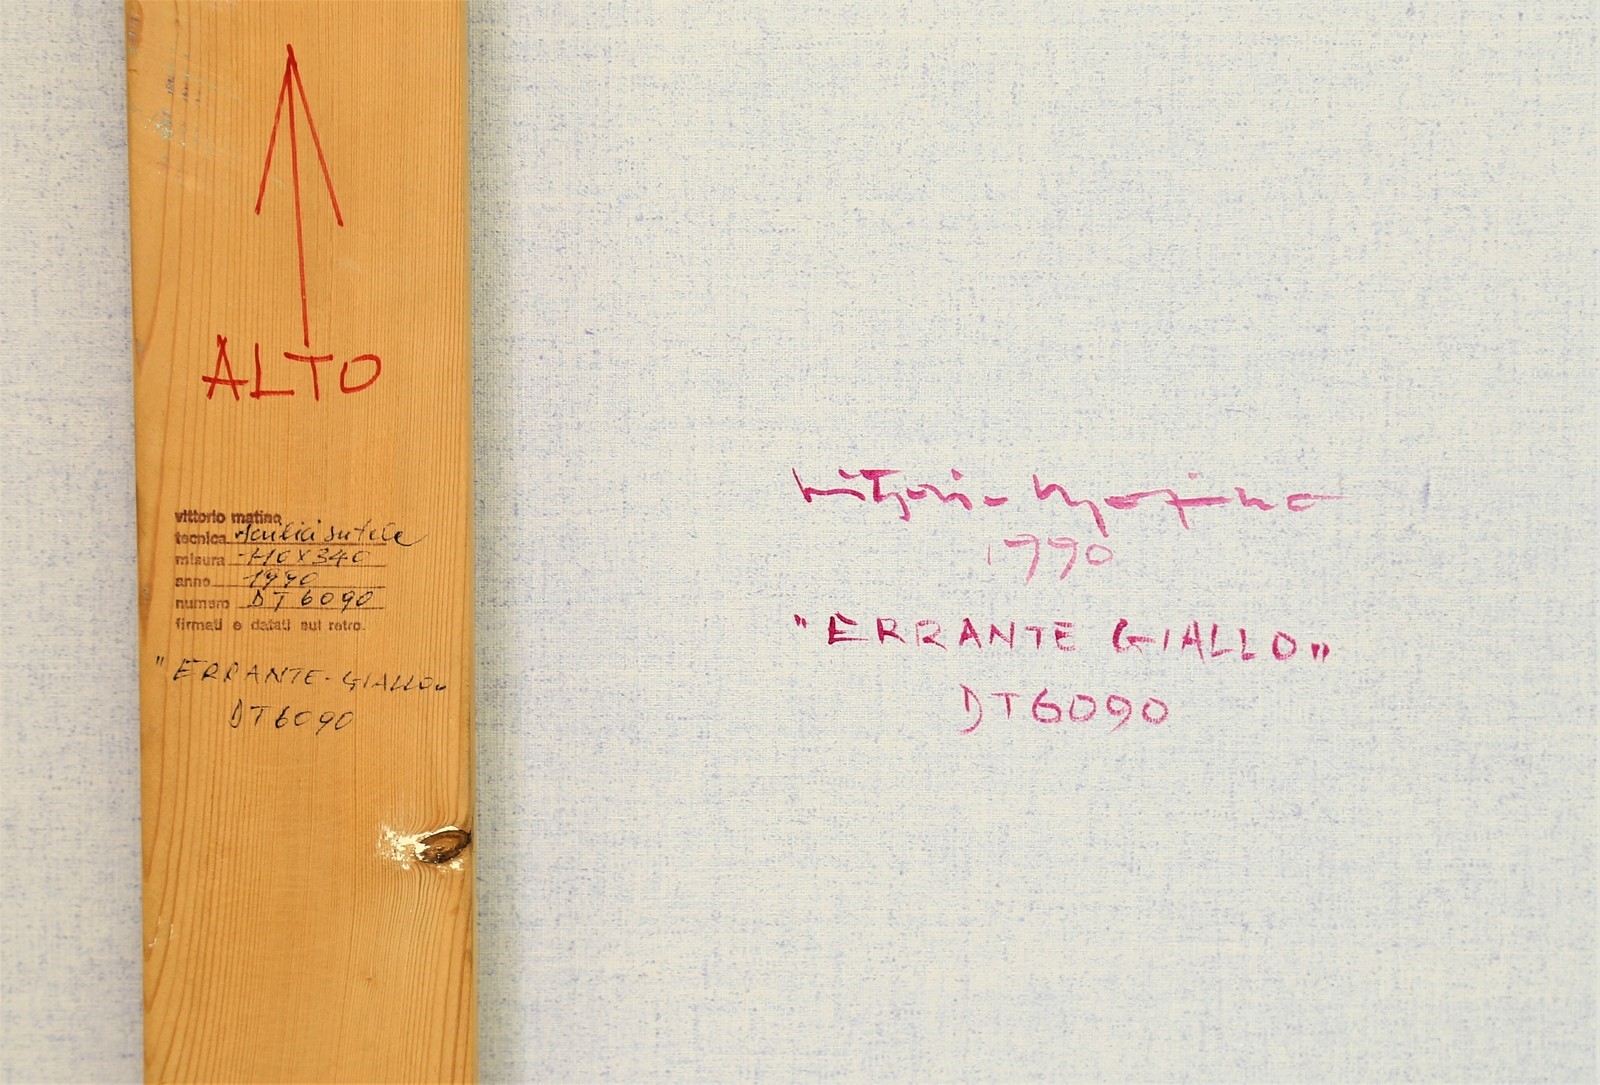 ALTO
vittorio matino
tecnica Acrilici su tela
misura 110X340
anno 1990
numero DT 6090
firmati e datati sul retro.
"ERRANTE-GIALLO"
DT6090
Vittorio Matino
1990
"ERRANTE GIALLO"
DT6090